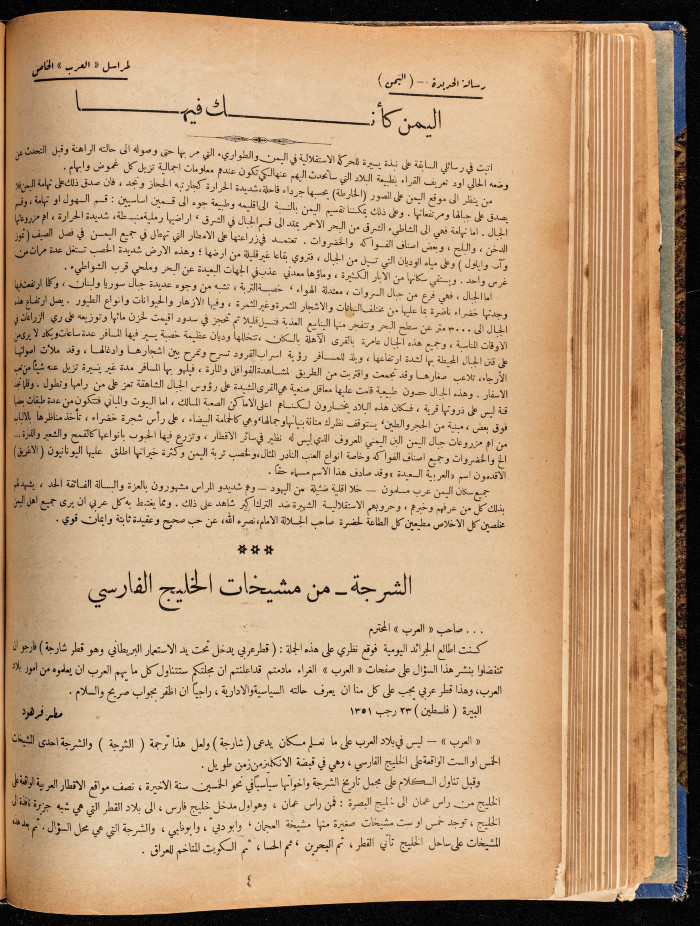 رسالة الحديدة -- ( اليمن )
لمراسل « العرب » الخاص
اليمن كأنك فيها
اتيت في رسائلي السابقة على نبذة يسيرة للحركة الاستقلالية في اليمن والطواريء التي مر بها حتى وصوله الى حالته الراهنة وقبل التحدث عن
وضعه الحالي اود تعريف القراء بطبيعة البلاد التي سأتحدث اليهم عنها لكي تكون عندهم معلومات اجمالية تزيل كل غموض وابهام .
من ينظر الى موقع اليمن على المصور (الخارطة) يحسبها جرداء قاحلة، شديدة الحرارة كجارتيه الحجاز ونجد ، فان صدق ذلك على تهامة اليمن فلا
يصدق على جبالها ومرتفعاتها . وعلى ذلك يمكننا تقسيم اليمن بالنسبة الى اقليمه وطبيعة جوه الى قسمين اساسيين : قسم السهول او تهامة ، وقسم
الجبال . اما تهامة فهي الشاطيء الشرقي من البحر الاحمر يمتد الى قسم الجبال في الشرق ، اراضيها رملية منبسطة، شديدة الحرارة ، اهم مزروعاتها
الدخن ، والبلح ، وبعض اصناف الفواكه والخضروات . تعتمد في زراعتها على الامطار التي تهطل في جميع اليمن في فصل الصيف (تموز
وآب وايلول ) وعلى مياه الوديان التي تسيل من الجبال ، فتروي بقاعا غير قليلة من ارضها ؛ وهذه الارض شديدة الخصب تستغل عدة مرات من
غرس واحد . ويستقي سكانها من الابار الكثيرة ، وماؤها معدني عذب في الجهات البعيدة عن البحر وملحي قرب الشواطيء .
اما الجبال ، فهي فرع من جبال السروات ، معتدلة الهواء ، خصبة التربة ، تشبه من وجوه عديدة جبال سوريا ولبنان ، وكلما ارتفعت فيها
وجدتها خضراء ناضرة بما عليها من مختلف النباتات والاشجار المثمرة وغير المثمرة ، وفيها الازهار والحيوانات وانواع الطيور . يصل ارتفاع هذه
الجبال الى ٣٠٠٠ متر عن سطح البحر وتتفجر منها الينابيع العذبة فتسيل قليلا ثم تحجز في سدود اقيمت لخزن مائها وتوزيعه على ري الزراعات في
الاوقات المناسبة ، وجميع هذه الجبال عامرة بالقرى الآهلة بالسكان ، تتخللها وديان عظيمة خصبة يسير فيها المسافر عدة ساعات ويكاد لا يرى من
على قنن الجبال المحيطة بها لشدة ارتفاعها ، ويلذ للمسافر رؤية اسراب القرود تسرح وتمرح بين اشجارها وادغالها ، وقد ملأت اصواتها
الأرجاء، تلاعب صغارها وقد تجمعت واقتربت من الطريق لمشاهدة القوافل والمارة ، فيلهو بها المسافر مدة غير يسيرة تزيل عنه شيئا من تعب
الاسفار . وهذه الجبال حصون طبيعية قامت عليها معاقل صنعية هي القرى المشيدة على رؤوس الجبال الشاهقة تعز على من رامها وتطول . وقلما تجد
قنة ليس على ذروتها قرية ، فسكان هذه البلاد يختارون لسكناهم اعلى الاماكن الصعبة المسالك ، اما البيوت والمباني فتتكون من عدة طبقات بعضا
فوق بعض ، مبنية من الحجر والطين، يستوقف نظرك متانة بنيانها وجمالها، وهي كالحمامة البيضاء ، على رأس شجرة خضراء ، تأخذ مناظرها بالالباب
من اهم مزروعات جبال اليمن البن اليمني المعروف الذي ليس له نظير في سائر الاقطار ، وتزرع فيها الحبوب بانواعها كالقمح والشعير والذرة...
الخ والخضروات وجميع اصناف الفواكه وخاصة انواع العنب النادر المثال، ولخصب تربة اليمن وكثرة خيراتها اطلق عليها اليونانيون ( الاغريق )
الاقدمون اسم «العربية السعيدة » وقد صادف هذا الاسم مسماه حقا .
جميع سكان اليمن عرب مسلمون — خلا اقلية ضئيلة من اليهود — وهم شديدو المراس مشهورون بالعزة والبسالة الفائقة الحد ، يشهد لهم
بذلك كل من عرفهم وخبرهم ، وحروبهم الاستقلالية الشهيرة ضد الترك اكبر شاهد على ذلك . ومما يغتبط به كل عربي ان يرى جميع اهل اليمن
مخلصين كل الاخلاص مطيعين كل الطاعة لحضرة صاحب الجلالة الامام، نصره الله، عن حب صحيح وعقيدة ثابتة وايمان قوي .
***
الشرجة - من مشيخات الخليج الفارسي
. . . صاحب « العرب » المحترم
كنت اطالع الجرائد اليومية فوقع نظري على هذه الجملة : ( قطر عربي يدخل تحت يد الاستعمار البريطاني وهو قطر شارجة ) فارجو ان
تتفضلوا بنشر هذا السؤال على صفحات « العرب » الغراء مادمتم قد اعلنتم ان مجلتكم ستتناول كل ما يهم العرب ان يعلموه من امور بلاد
العرب، وهذا قطر عربي يجب على كل منا ان يعرف حالته السياسية والادارية ، راجيا ان اظفر بجواب صريح والسلام .
البيرة ( فلسطين ) ٢٣ رجب ١٣٥١
مطر فرهود
« العرب » — ليس في بلاد العرب على ما نعلم مكان يدعى ( شارجة ) ولعل هذا ترجمة ( الشرجة ) والشرجة احدى المشيخات
الخمس او الست الواقعة على الخليج الفارسي ، وهي في قبضة الانكليز من زمن طويل .
وقبل تناول الكلام على مجمل تاريخ الشرجة واخواتها سياسيا في نحو الخمسين سنة الاخيرة ، نصف مواقع الاقطار العربية الواقعة على
الخليج من راس عمان الى خليج البصرة : فمن راس عمان ، وهو اول مدخل خليج فارس ، الى بلاد القطر التي هي شبه جزيرة نافذة الى
الخليج ، توجد خمس او ست مشيخات صغيرة منها مشيخة العجمان ، وابو دبي ، وابوظبي ، والشرجة التي هي محل السؤال . ثم بعد هذه
المشيخات على ساحل الخليج تأتي القطر ، ثم البحرين ، ثم الحسا ، ثم الكويت المتاخم للعراق .
٤